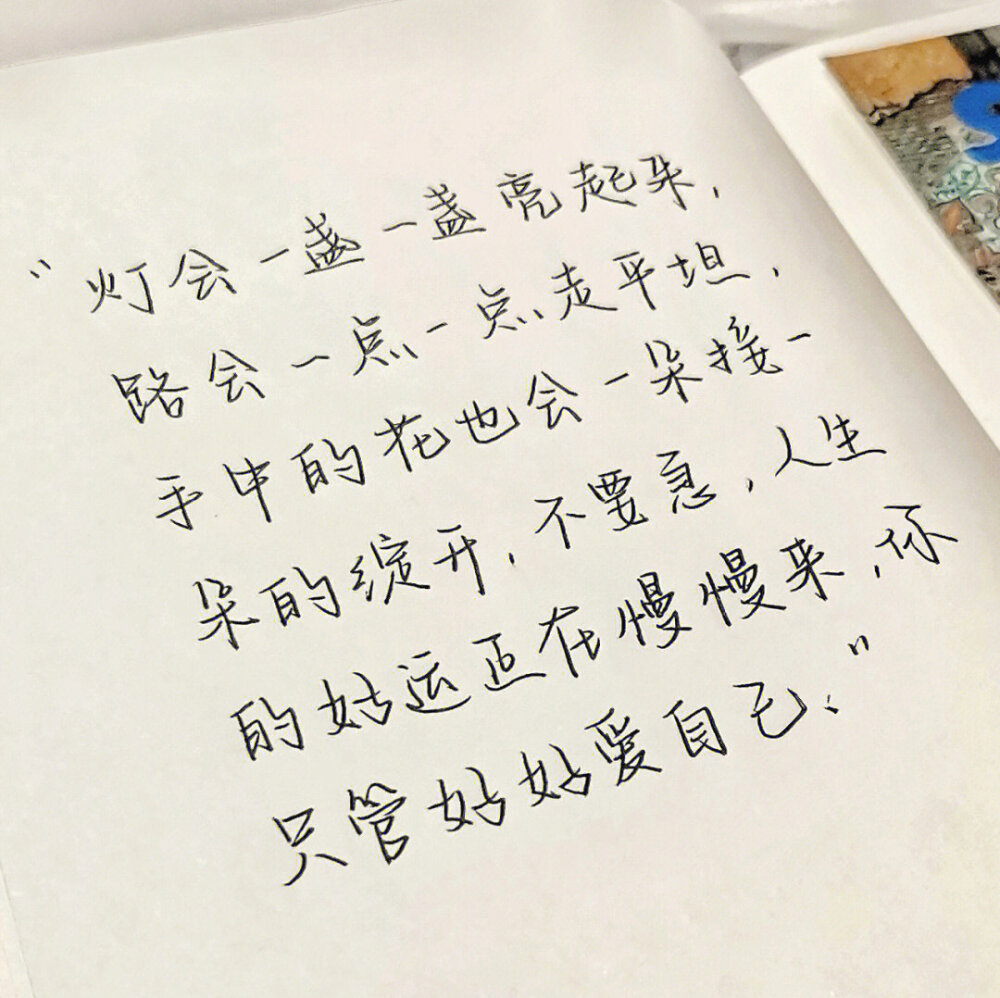 “灯会一盏一盏亮起来，
路会一点一点走平坦，
手中的花也会一朵接一
朵的绽开，不要急，人生
的好运正在慢慢来，你
只管好好爱自己、”
S